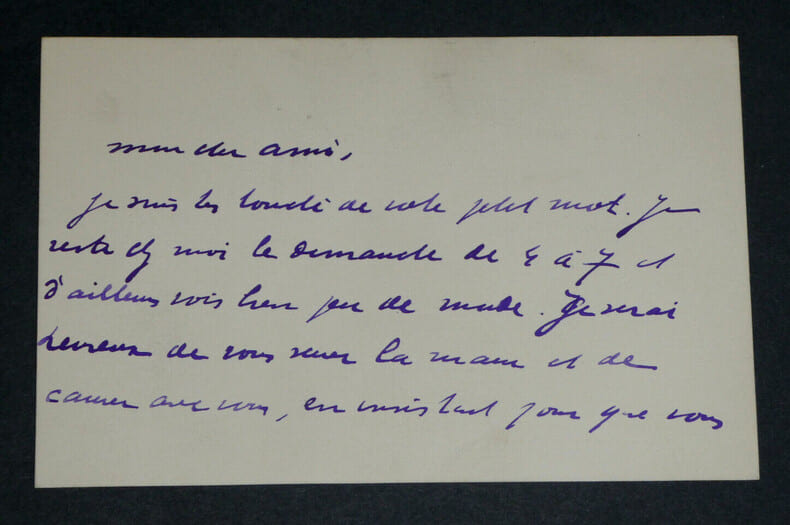 mon cher ami,
je suis très touché de votre petit mot. Je
reste chez moi le dimanche de 4 à 7 et
d'ailleurs vois bien peu de monde. Je serai
heureux de vous serrer la main et de
causer avec vous, en insistant pour que vous